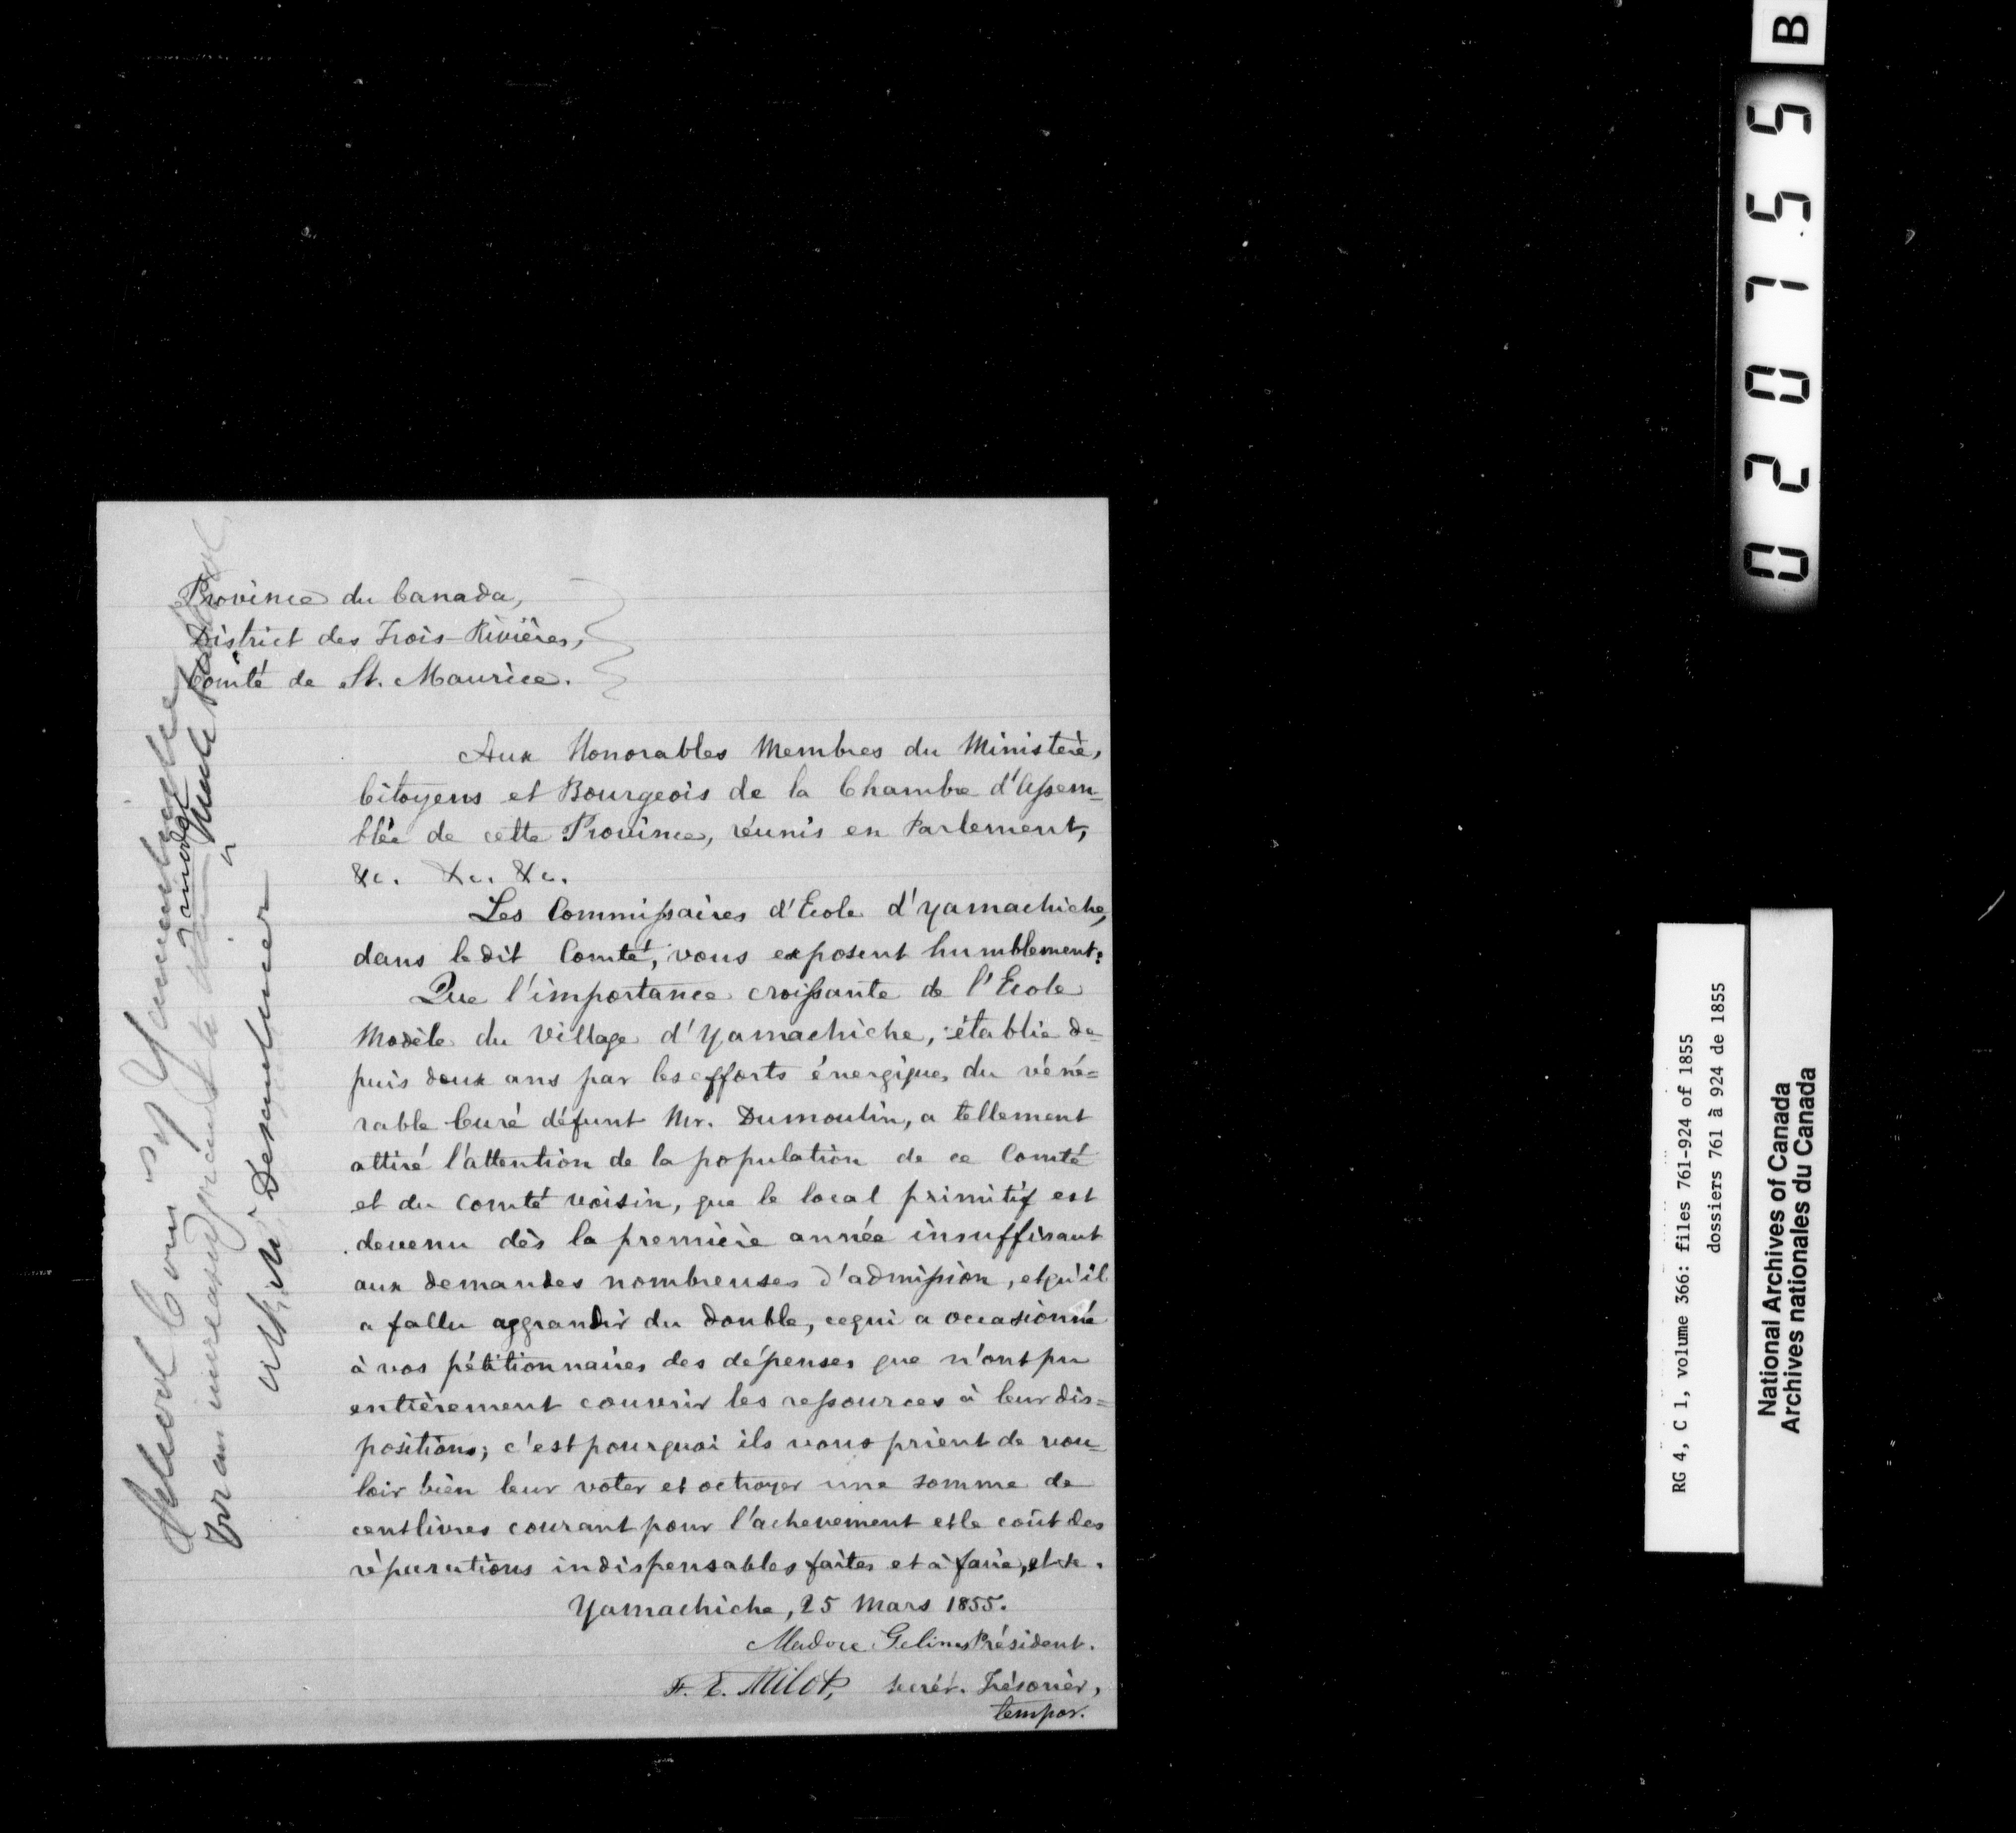 Province du Canada,
District des Trois-Rivières,
Comté de St. Maurice.
Aux Honorables Membres du Ministère,
Citoyens et Bourgeois de la Chambre d'Assem=
blée de cette Province, réunis en Parlement,
&c. &c. &c.
Les Commissaires d'Ecole d'Yamachiche,
dans ledit Comté, vous exposent humblement:
Que l'importance croissante de l'Ecole
Modèle du Village d'Yamachiche, établie de=
puis deux ans par les efforts énergiques du véné=
rable Curé défunt Mr. Dumoulin, a tellement
attiré l'attention de la population de ce Comté
et du Comté voisin, que le local primitif est
devenu dès la première année insuffisant
aux demandes nombreuses d'admission, et qu'il
a fallu aggrandir du double, ce qui a occasionné
à vos pétitionnaires des dépenses que n'ont pu
entièrement couvrir les ressources à leur dis=
positions; c'est pourquoi ils vous prient de vou=
loir bien leur voter et octroyer une somme de
cent livres courant pour l'achevement et le coût des
réparations indispensables faites et à faire, et &c.
Yamachiche, 25 Mars 1855.
Madore Gelinas Président.
F. E. Milot, Secrét. Trésorier,
tempor.
School Com Yamachiche
020155
B
RG 4, C 1, volume 366: files 761-924 of 1855
dossiers 761 à 924 de 1855
National Archives of Canada
Archives nationales du Canada